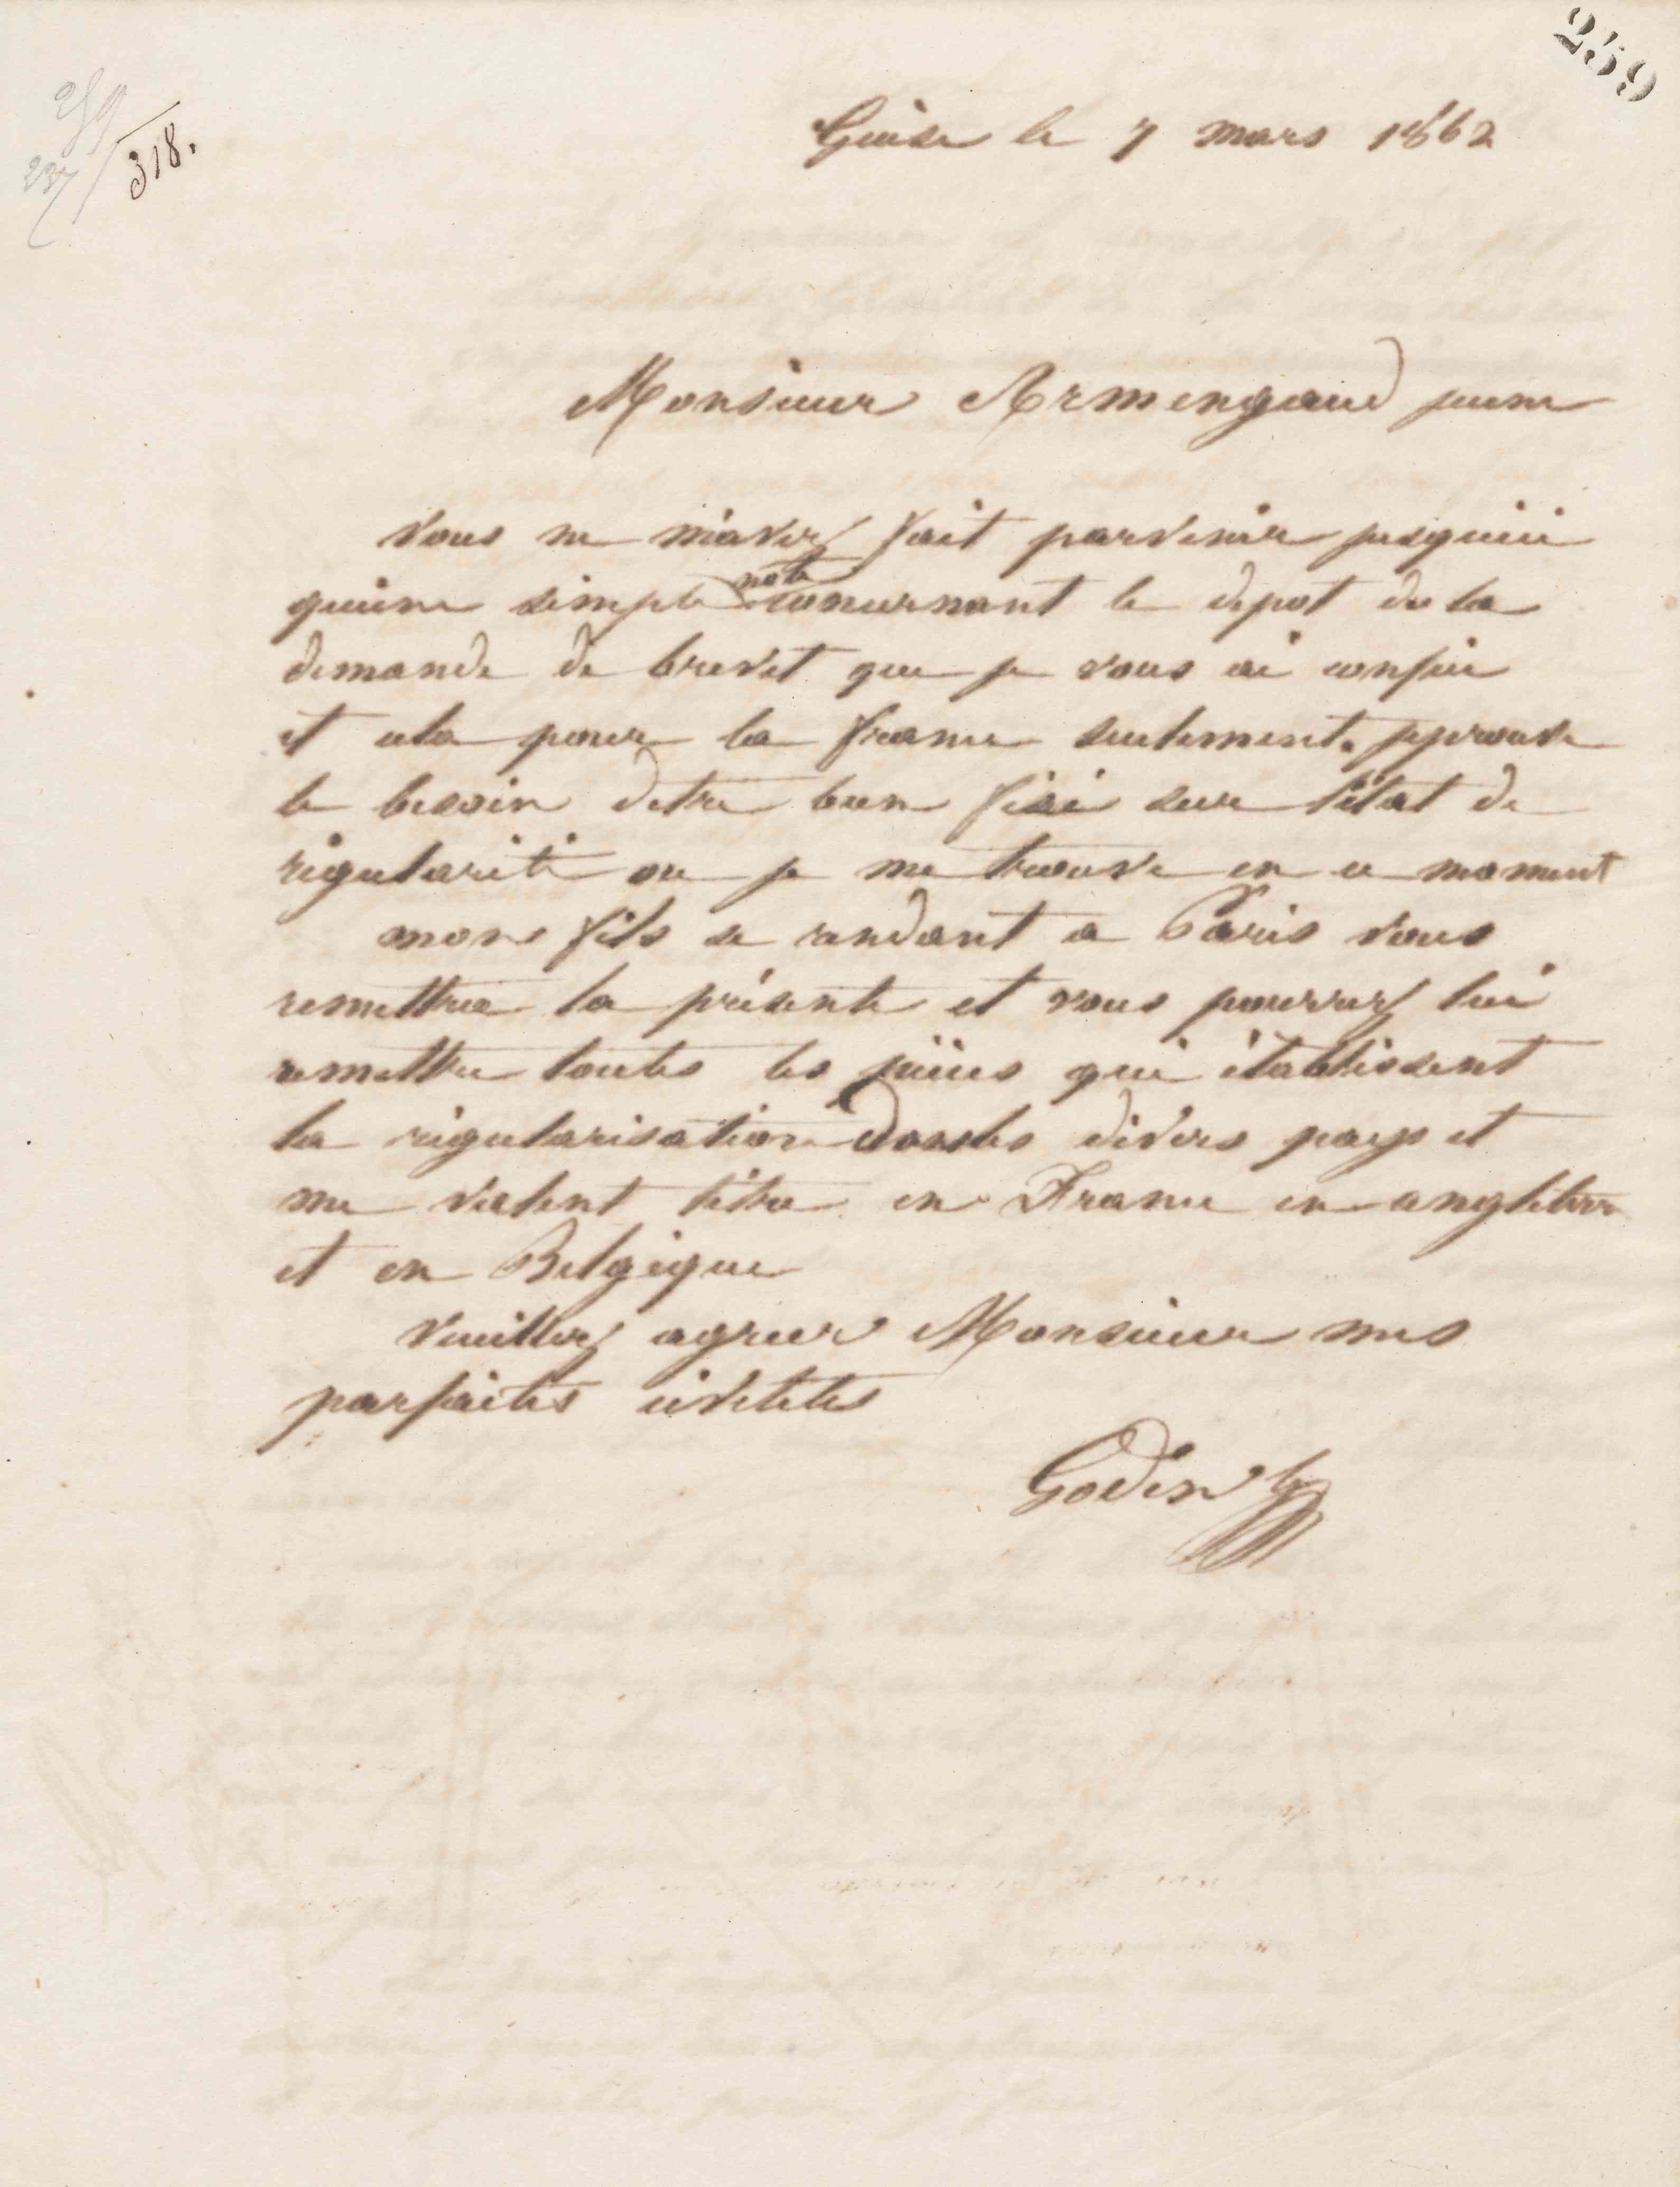 259
259
237
318.
Guise le 7 mars 1862
Monsieur Armengaud jeune
vous ne m'avez fait parvenir jusquici
quune simple note concernant le depot de la
demande de brevet que je vous ai confiée
et cela pour la france seulement. jeprouve
le besoin detre bien fixé sur l'état de
régularité ou je me trouve en ce moment
mon fils se rendant a Paris vous
remettra la présente et vous pourrez lui
remettre toutes les pièces qui établissent
la régularisation dans les divers pays et
me valent titre en France en angleterre
et en Belgique
veuillez agreer Monsieur mes
parfaites civilités
Godin